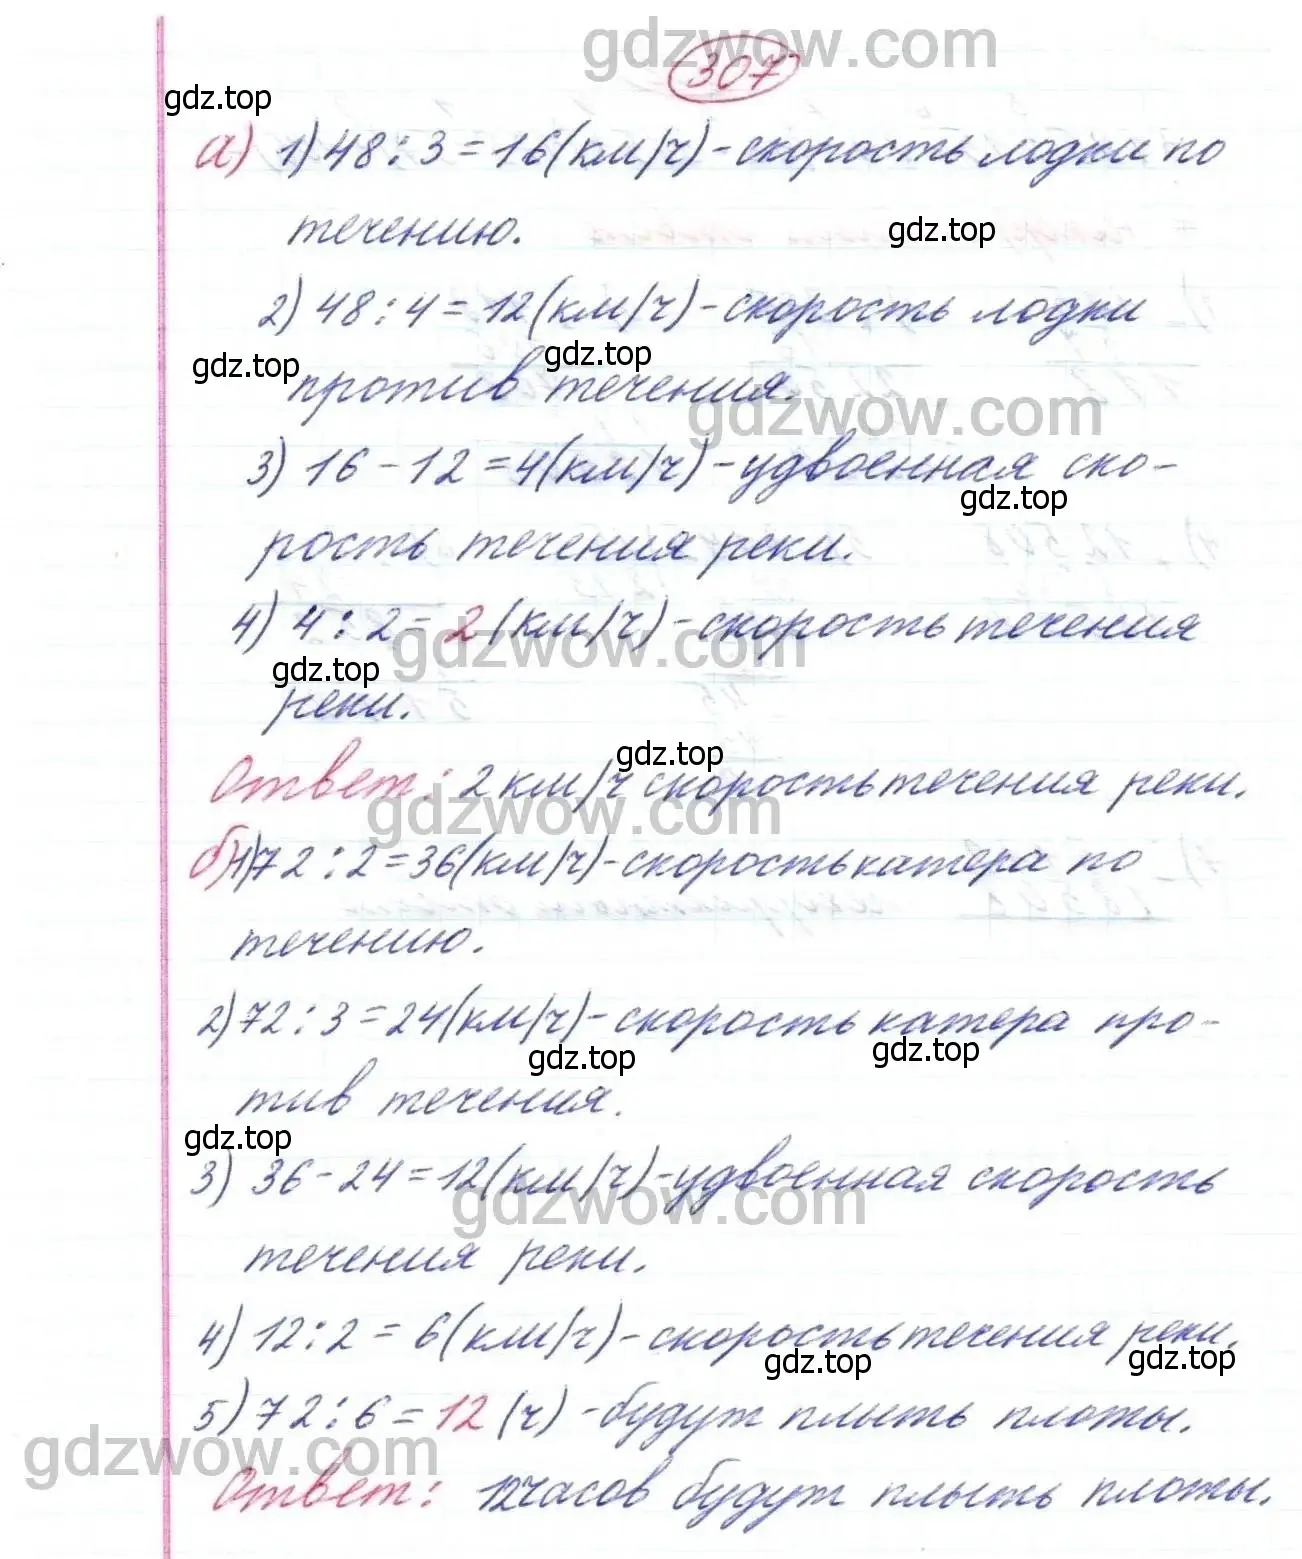 gdzwow.com
307
gdz.top
а) 1) 48 : 3 = 16 (км/ч) - скорость лодки по
течению.
gdz.top
2) 48 : 4 = 12 (км/ч) - скорость лодки
gdz.top gdz.top
против течения.
gdzwow.com
3) 16 - 12 = 4 (км/ч) - удвоенная ско-
gdz.top
рость течения реки.
4) 4 : 2 = 2 (км/ч) - скорость течения
gdzwow.com
gdz.top
реки.
gdz.top
Ответ: 2 км/ч скорость течения реки.
gdzwow.com
б) 1) 72 : 2 = 36 (км/ч) - скорость катера по
течению.
2) 72 : 3 = 24 (км/ч) - скорость катера про-
gdz.top gdz.top
тив течения.
gdz.top
3) 36 - 24 = 12 (км/ч) - удвоенная скорость
gdzwow.com
течения реки.
4) 12 : 2 = 6 (км/ч) - скорость течения реки.
gdz.top gdz.top
5) 72 : 6 = 12 (ч) - будут плыть плоты.
gdzwow.com
Ответ: 12 часов будут плыть плоты.